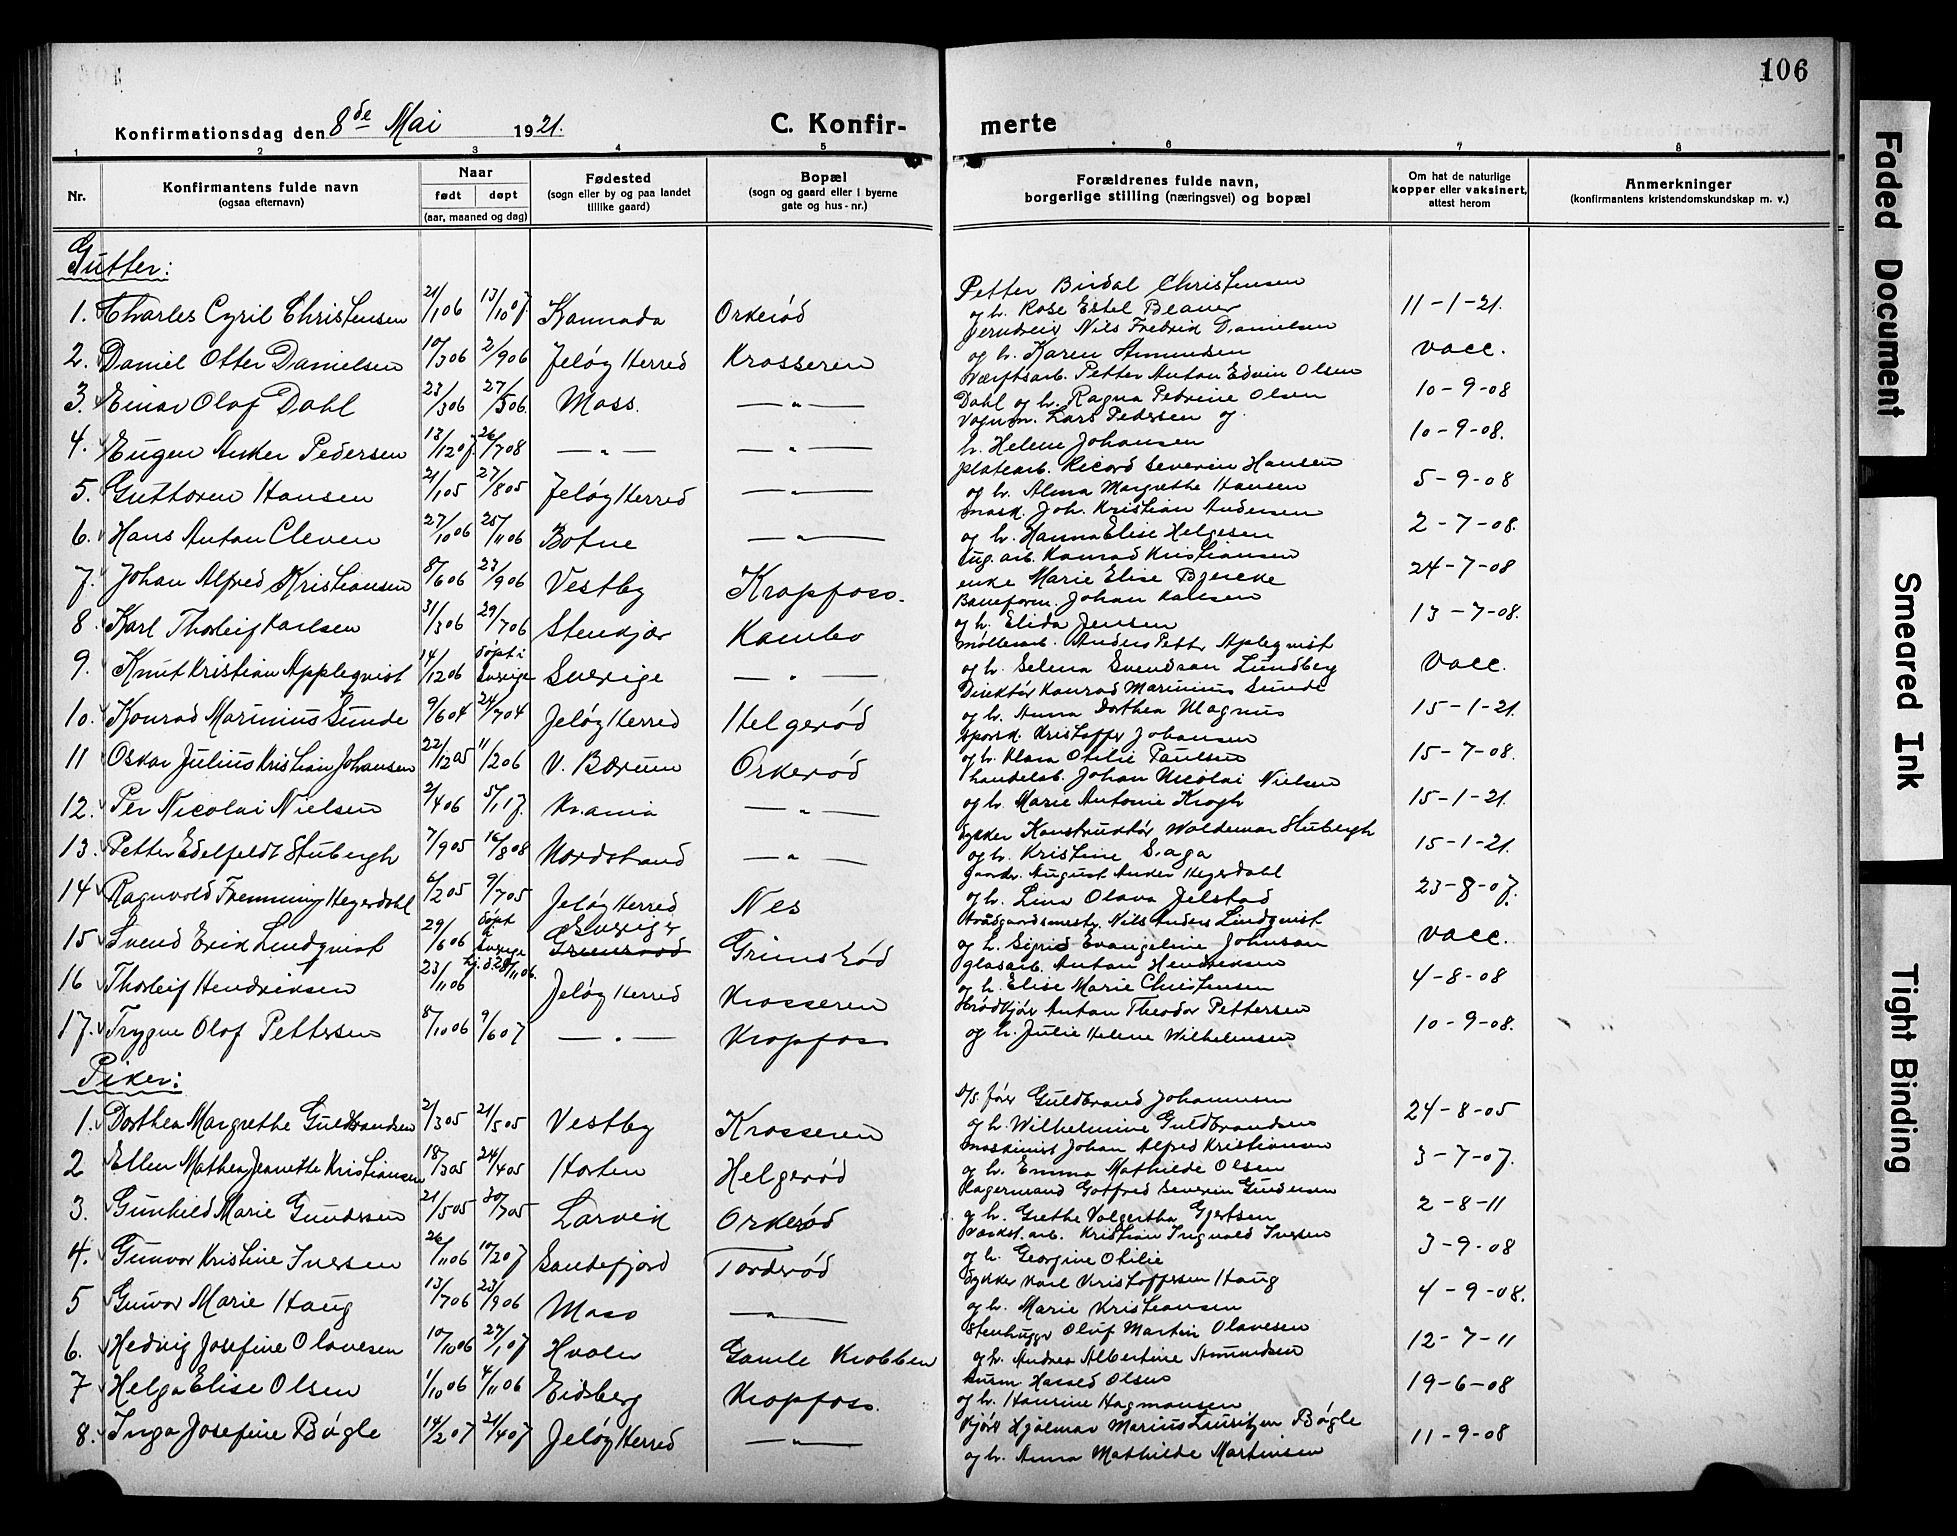 106
Konfirmationsdag den 8de Mai 1921.
C. Konfir- merte
1 2 3 4 5 6 7 8
Nr.
Konfirmantens fulde navn
(ogsaa efternavn)
Naar
født døpt
(aar, maaned og dag)
Fødested
(sogn eller by og paa landet
tillike gaard)
Bopæl
(sogn og gaard eller i byerne
gate og hus-nr.)
Forældrenes fulde navn,
borgerlige stilling (næringsvei) og bopæl
Om hat de naturlige
kopper eller vaksinert,
attest herom
Anmerkninger
(konfirmantens kristendomskundskap m. v.)
Gutter:
1. Charles Cyril Christensen 21/1 06 13/10 07. Kannada Orkerød Petter Birdal Christensen
og h. Rose Estel Beaver 11-1-21.
2. Daniel Otter Danielsen 10/3 06 2/9 06 Jeløy Herred Krosseren Jerndreier Nils Fredrik Danielsen
og h. Karen Amundsen vacc.
3. Einar Olaf Dahl 23/3 06 27/5 06. Moss. —„— Værftsarb. Petter Anton Edvin Olsen
Dahl og h. Ragna Petrine Olsen 10-9-08
4. Eugen Anker Pedersen 13/12 07. 26/7 08 —„— —„— Vognm. Lars Pedersen og
h. Helene Johansen 10-9-08.
5. Guttorm Hansen 21/1 05 27/8 05 Jeløy Herred —„— Platearb. Ricard Severin Hansen
og h. Alma Margrethe Hansen 5-9-08
6. Hans Anton Cleven 27/10 06 25/11 06 Botne —„— mask. Joh. Kristian Andersen
og h. Hanna Elise Helgesen 2-7-08.
7. Johan Alfred Kristiansen 8/6 06 23/9 06 Vestby Kropfoss. Tug.arb. Konrad Kristiansen
enke Marie Elise Bjercke 24-7-08
8. Karl Thorleif Karlsen 31/3 06 29/7 06 Stenkjær Kambo Baneform. Johan Karlsen
og h. Elida Jensen 13-7-08.
9. Knut Kristian Appleqvist 14/12 06 døpt i Sverige Sverige —„— Møllerarb. Anders Petter Apleqvist
og h. Selena Svendsan Lundberg Vacc.
10. Konrad Marinius Sunde 9/6 04 24/7 04 Jeløy Herred Helgerød Direktør Konrad Marinius Sunde
og h. Anna Dorthea Magnus 15-1-21.
11 Oskar Julius Kristian Johansen 22/12 05 11/2 06 V. Bærum Orkerød Sporsk. Kristoffer Johansen
og h. Klara Otilie Paulsen 15-7-08.
12. Per Nicolai Nielsen 2/4 06 5/1 17. Kr.ania —„— handelsb. Johan Nicolai Nielsen
og h. Marie Antonie Krogh 15-1-21.
13. Petter Edelfeldt Stubergh 7/9 05 16/8 08 Nordstrand —„— Dykker Konstruktør Waldemar Stubergh
og h. Kristine Saga 15-1-21.
14 Ragnvald Flemming Hegerdahl 6/2 05 9/7 05 Jeløy Herred Nes Gaardr. August Anker Hegerdahl
og h. Lina Olava Jelstad 23-8-07.
15 Svend Erik Lindqvist 29/6 06 døpt i Sverige Sverige Grimsrød Traadgaardsmestr. Nils Anders Lindqvist
og h. Sigrid Evangeline Johnsan vacc.
16 Thorleif Hendriksen 23/11 06 hj. d. 28/11 06. Jeløy Herred Krosseren glasarb. Anton Hendriksen
og h. Elise Marie Christensen 4-8-08
17. Trygve Olaf Pettersen 8/10 06 9/6 07 —„— Kropfoss Brødkjør Anton Theodor Pettersen
og h. Julie Helene Wilhelmsen 10-9-08.
Piker:
1. Dorthea Margrethe Guldbrandsen 2/3 05 21/5 05 Vestby Krosseren D/S. fører Guldbrand Johannesen
og h. Wilhelmine Guldbrandsen 24-8-05
2 Ellen Mathea Jeanette Kristiansen 18/3 05 24/4 05 Horten Helgerød maskinist Johan Alfred Kristiansen
og h. Emma Mathilde Olsen 3-7-07.
3. Gunhild Marie Gundersen 21/5 05 30/7 05 Larvik Orkerød Lagermand Gotfred Severin Gundersen
og h. Grethe Valgertha Gjertsen 2-8-11
4. Gunvor Kristine Iversen 26/11 06 10/2 07 Sandefjord Torderød Værkst.arb. Kristian Ingvald Iversen
og h. Georgine Otilie 3-9-08
5 Gunvor Marie Haug 13/7 06 23/9 06 Moss —„— Dykker Karl Kristoffersen Haug
og h. Marie Kristiansen 4-9-08.
6. Hedvig Josefine Olavesen 10/10 06 27/1 07 Hvaler Gamle Krobben Stenhugger Oluf Martin Olavesen
og h. Andrea Albertine Amundsen 12-7-11
7 Helga Elise Olsen 1/10 06 4/11 06 Eidsberg Kropfoss. Harald Olsen
og h. Hansine Hagmansen 19-6-08
8. Inga Josefine Bøgle 14/2 07 21/4 07 Jeløy Herred —„— Kjører Hjalmar Marius Lauritzen Bøgle
og h. Anna Mathilde Martinsen 11-9-08
Faded Document
Smeared Ink
Tight Binding